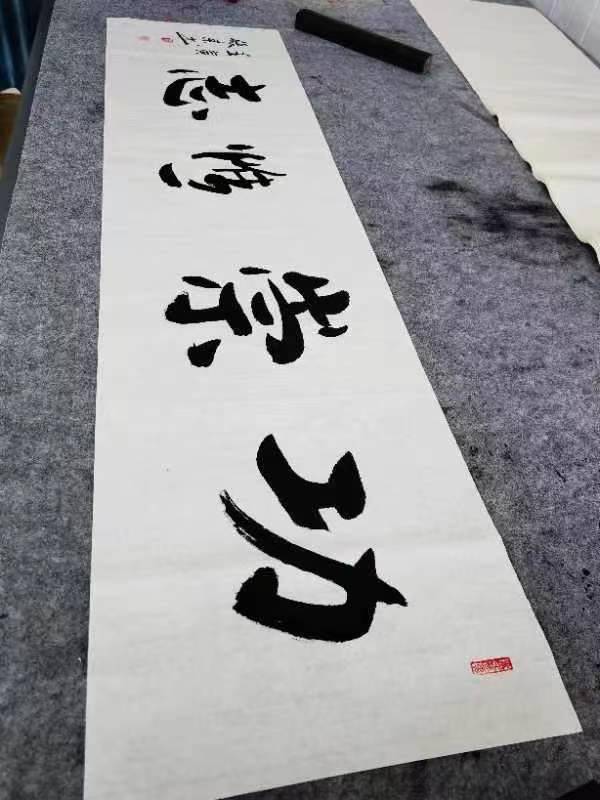 功崇惟志